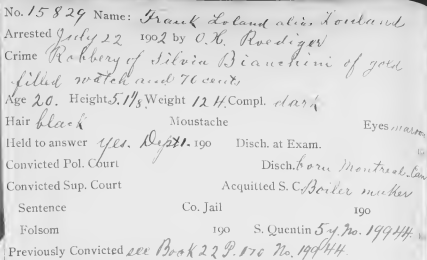 No. 15829 Name: Frank Loland alias Zouland
Arrested July 22 1902 by O.H. Roediger
Crime Robbery of Silvia Bianchini of gold
filled watch and 70 cents
Age 20. Height 5.1 1/8 Weight 124. Compl. dark
Hair black Moustache Eyes maroon
Held to answer yes. Dept 1. 190 Disch. at Exam.
Convicted Pol. Court Disch. born Montreal Can
Convicted Sup. Court Acquitted S. C. Boiler maker
Sentence Co. Jail 190
Folsom 190 S. Quentin 5 y. No. 19944.
Previously Convicted see Book 22 P. 170 No. 19944